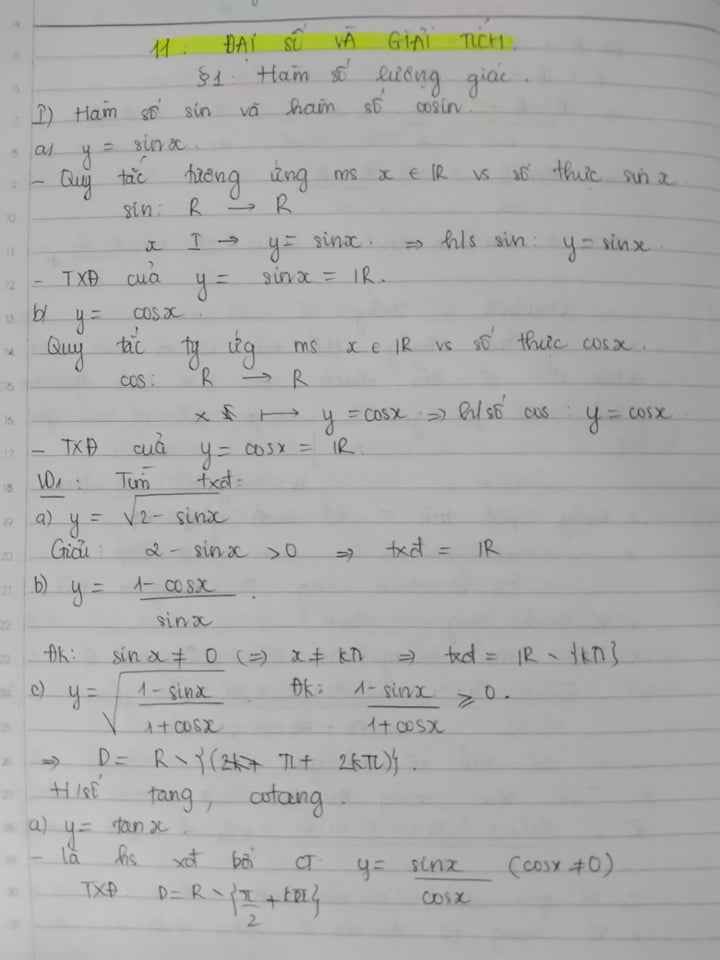 11. ĐẠI SỐ VÀ GIẢI TÍCH.
§1. Hàm số lượng giác.
I) Hàm số sin và hàm số cosin
a) y = sin x.
- Quy tắc tương ứng ms x ∈ R vs số thực sin x
sin: R → R
x ↦ y = sinx. ⇒ h/s sin: y = sinx
- TXĐ của y = sinx = R.
b) y = cosx.
Quy tắc tg ứg ms x ∈ R vs số thực cosx.
cos: R → R
x ↦ y = cosx ⇒ h/số cos: y = cosx
- TXĐ của y = cosx = R.
VD1: Tìm txđ:
a) y = √(2 - sinx)
Giải: 2 - sinx > 0 ⇒ txđ = R
b) y = (1 - cosx)/sinx.
Đk: sinx ≠ 0 (=) x ≠ kπ ⇒ txđ = R \ {kπ}
c) y = √((1 - sinx)/(1 + cosx)) Đk: (1 - sinx)/(1 + cosx) ⩾ 0.
⇒ D = R \ {(π + 2kπ)}.
H/số tang, cotang.
a) y = tanx.
- là hs xđ bởi CT y = sinx/cosx (cosx ≠ 0)
TXĐ D = R \ {π/2 + kπ}